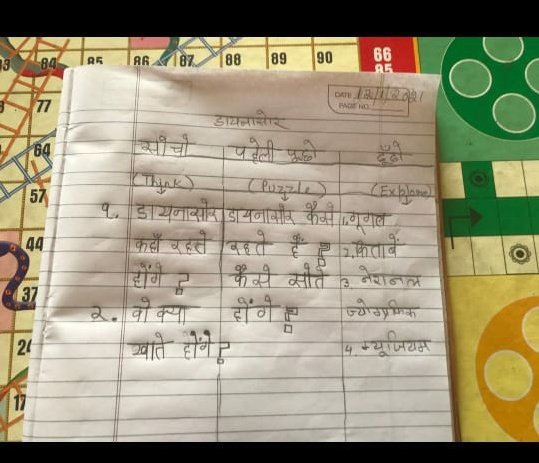 84 85 86 87 88 89 90 66
65
77
64
57
44
37
17
DATE
PAGE NO.
डायनासोर
सोचो पहेली पूछो ढूँढो
(Think) (Puzzle) (Explore)
१. डायनासोर डायनासोर कैसे 1. गूगल
कहाँ रहते रहते हैं ? 2. किताबें
होंगे ? कैसे सोते 3. नेशनल
२. वो क्या होंगे ? ज्योग्राफिक
खाते होंगे ? 4. म्यूजियम